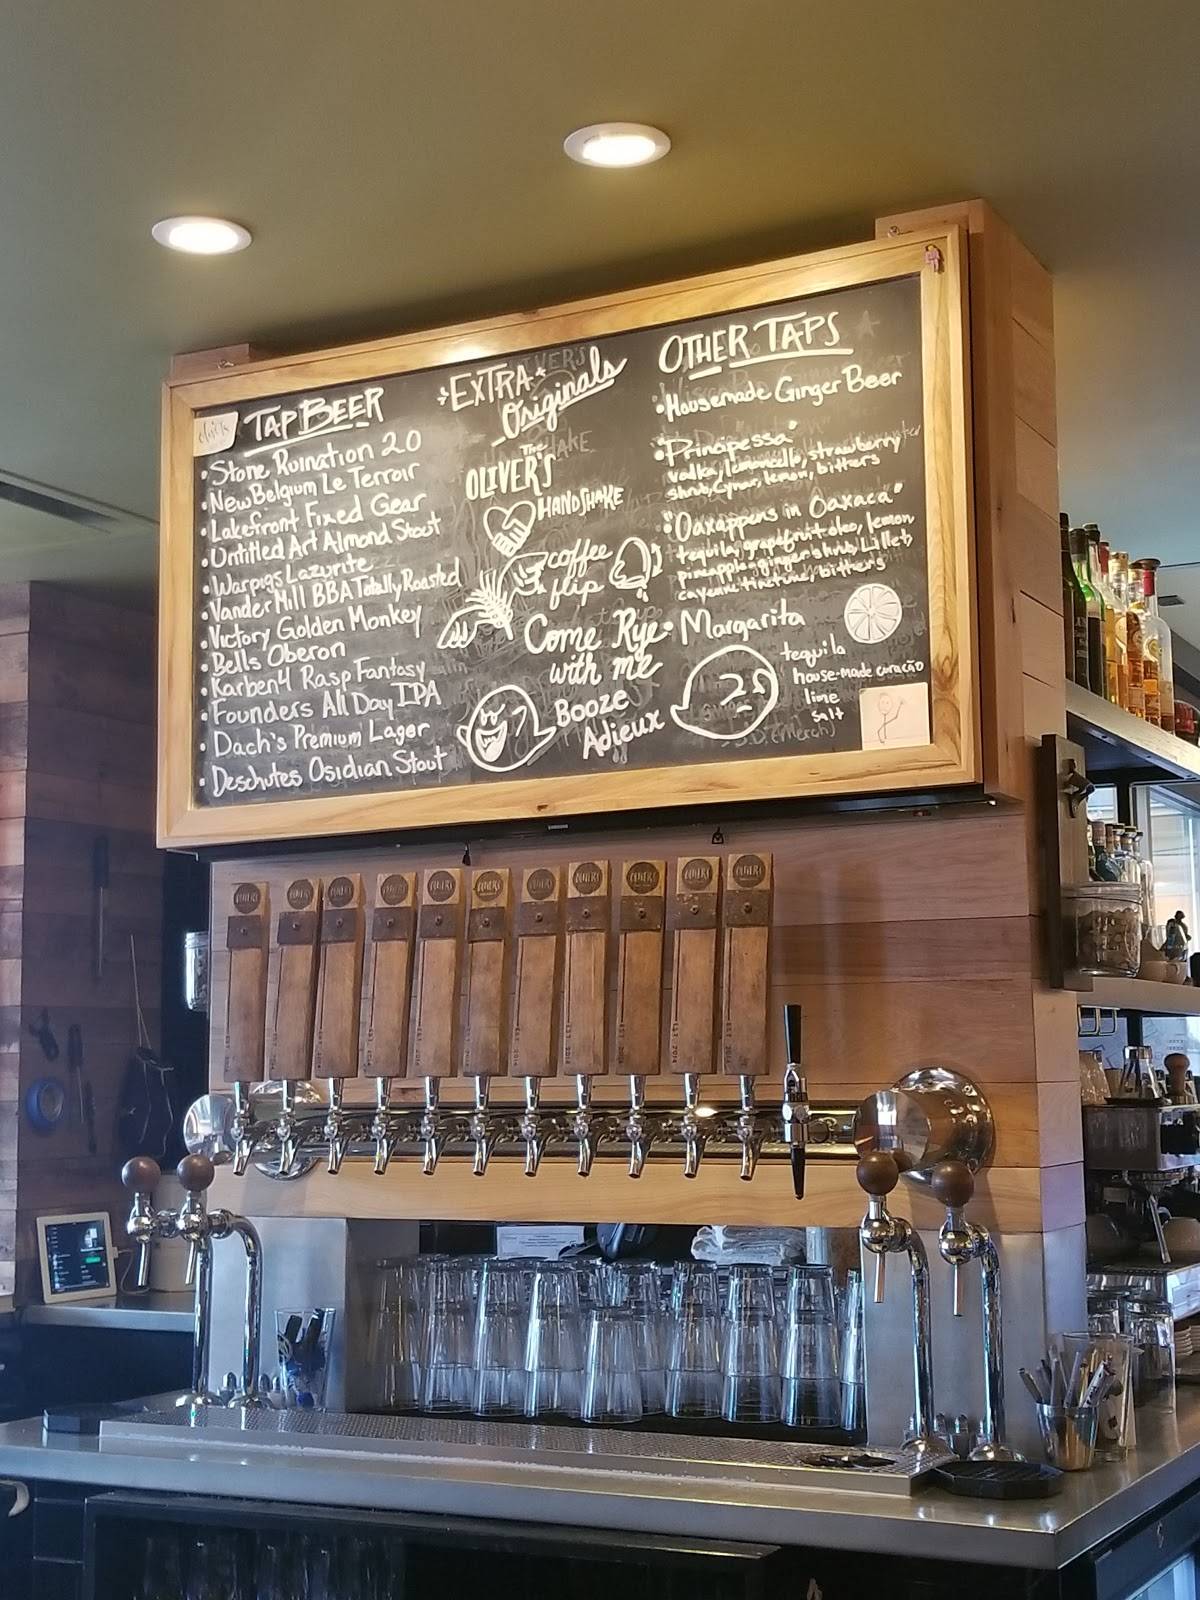 TAP BEER
• Stone Ruination 2.0
• New Belgium Le Terroir
• Lakefront Fixed Gear
• Untitled Art Almond Stout
• Warpigs Lazurite
• Vander Mill BBA Totally Roasted
• Victory Golden Monkey
• Bells Oberon
• Karben4 Rasp Fantasy
• Founders All Day IPA
• Dach's Premium Lager
• Deschutes Osidian Stout
EXTRA
Originals
The
OLIVER'S
HANDSHAKE
coffee
flip
Come Rye
with me
Booze
Adieux
OTHER TAPS
• Housemade Ginger Beer
• "Principessa"
vodka, lemoncello, strawberry
shrub, cynar, lemon, bitters
• "Oaxappens in Oaxaca"
tequila, grapefruit oleo, lemon
pineapple + ginger shrub, Lillet,
cayenne tincture, bitters
• Margarita
tequila
house-made curacão
lime
salt
SAMSUNG